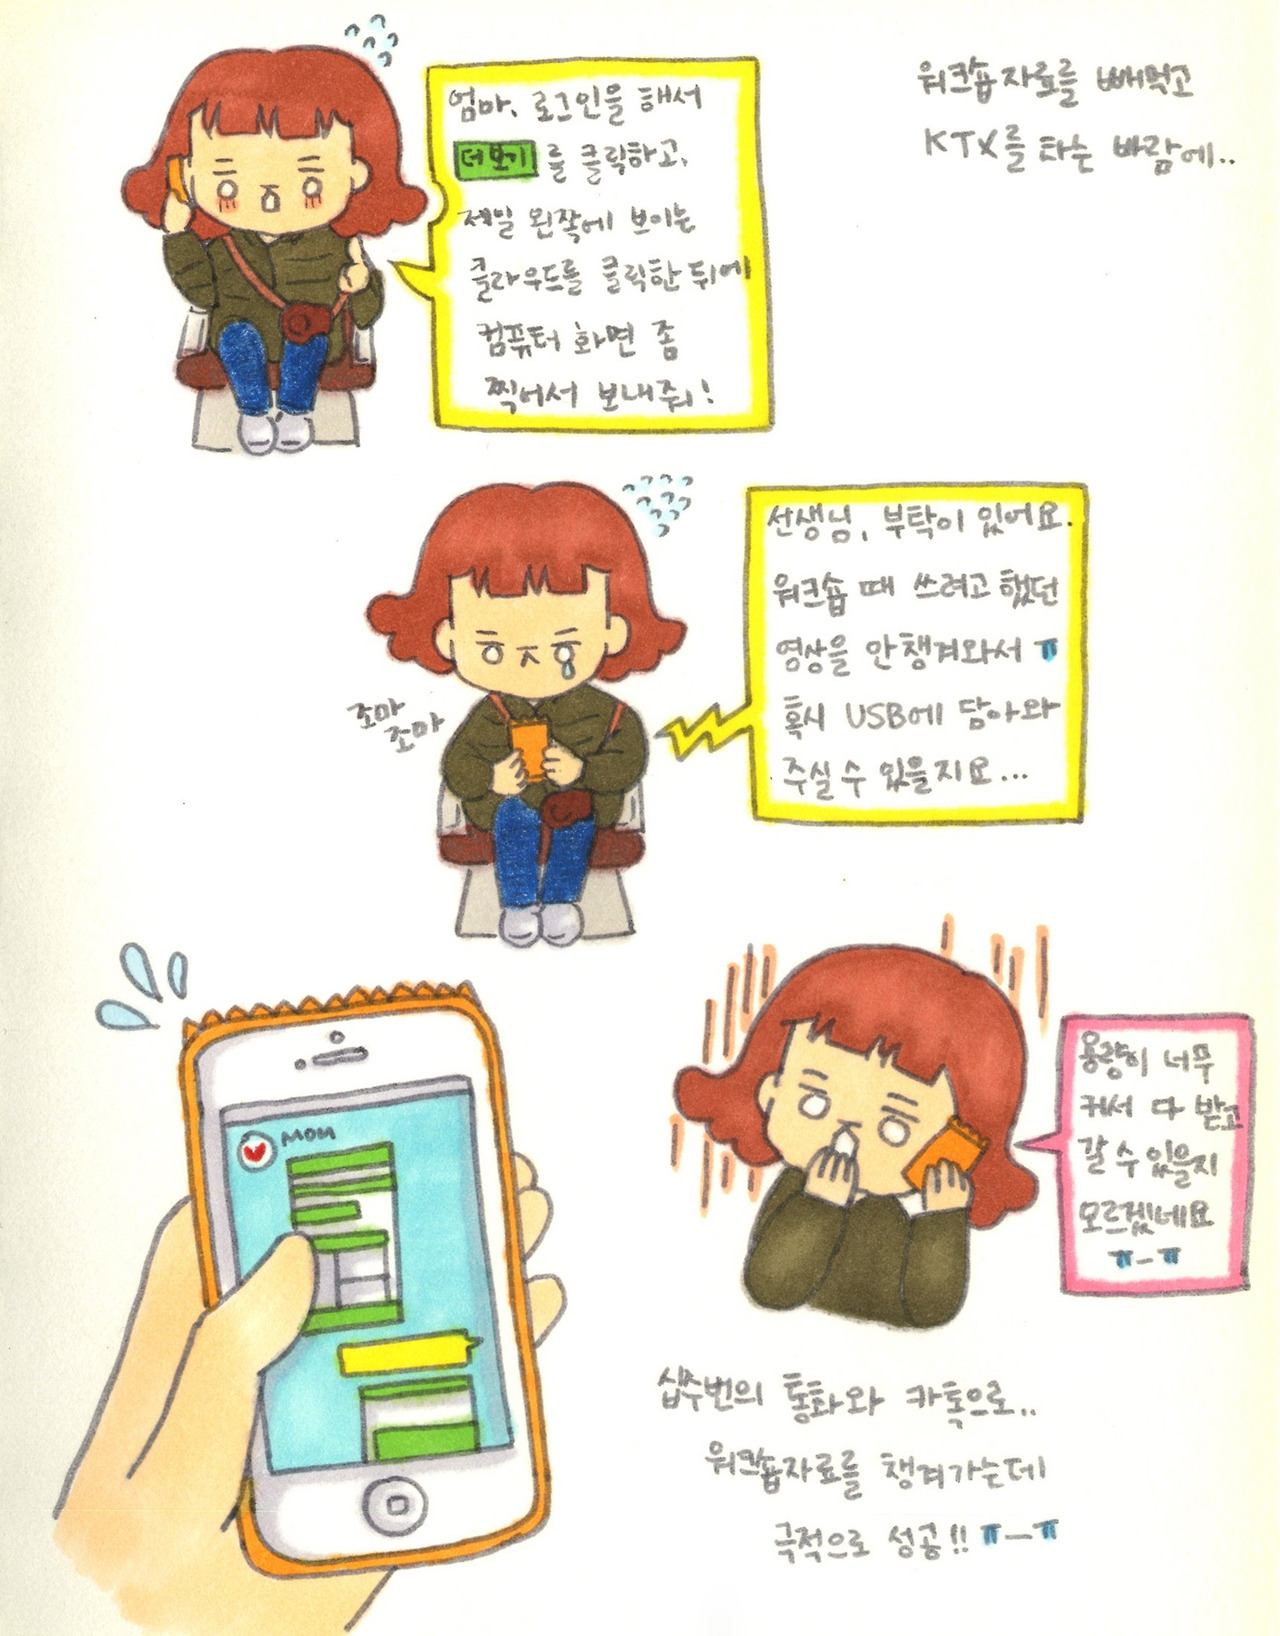 워크숍자료를 빼먹고
KTX를 타는 바람에..
엄마, 로그인을 해서
더보기 를 클릭하고,
제일 왼쪽에 보이는
클라우드를 클릭한 뒤에
컴퓨터 화면 좀
찍어서 보내줘!
선생님, 부탁이 있어요.
워크숍 때 쓰려고 했던
영상을 안챙겨와서 ㅠ
혹시 USB에 담아와
주실 수 있을지요...
조마
조마
MOM
용량이 너무
커서 다 받고
갈 수 있을지
모르겠네요
ㅠ-ㅠ
십수번의 통화와 카톡으로..
워크숍자료를 챙겨가는데
극적으로 성공!! ㅠ-ㅠ